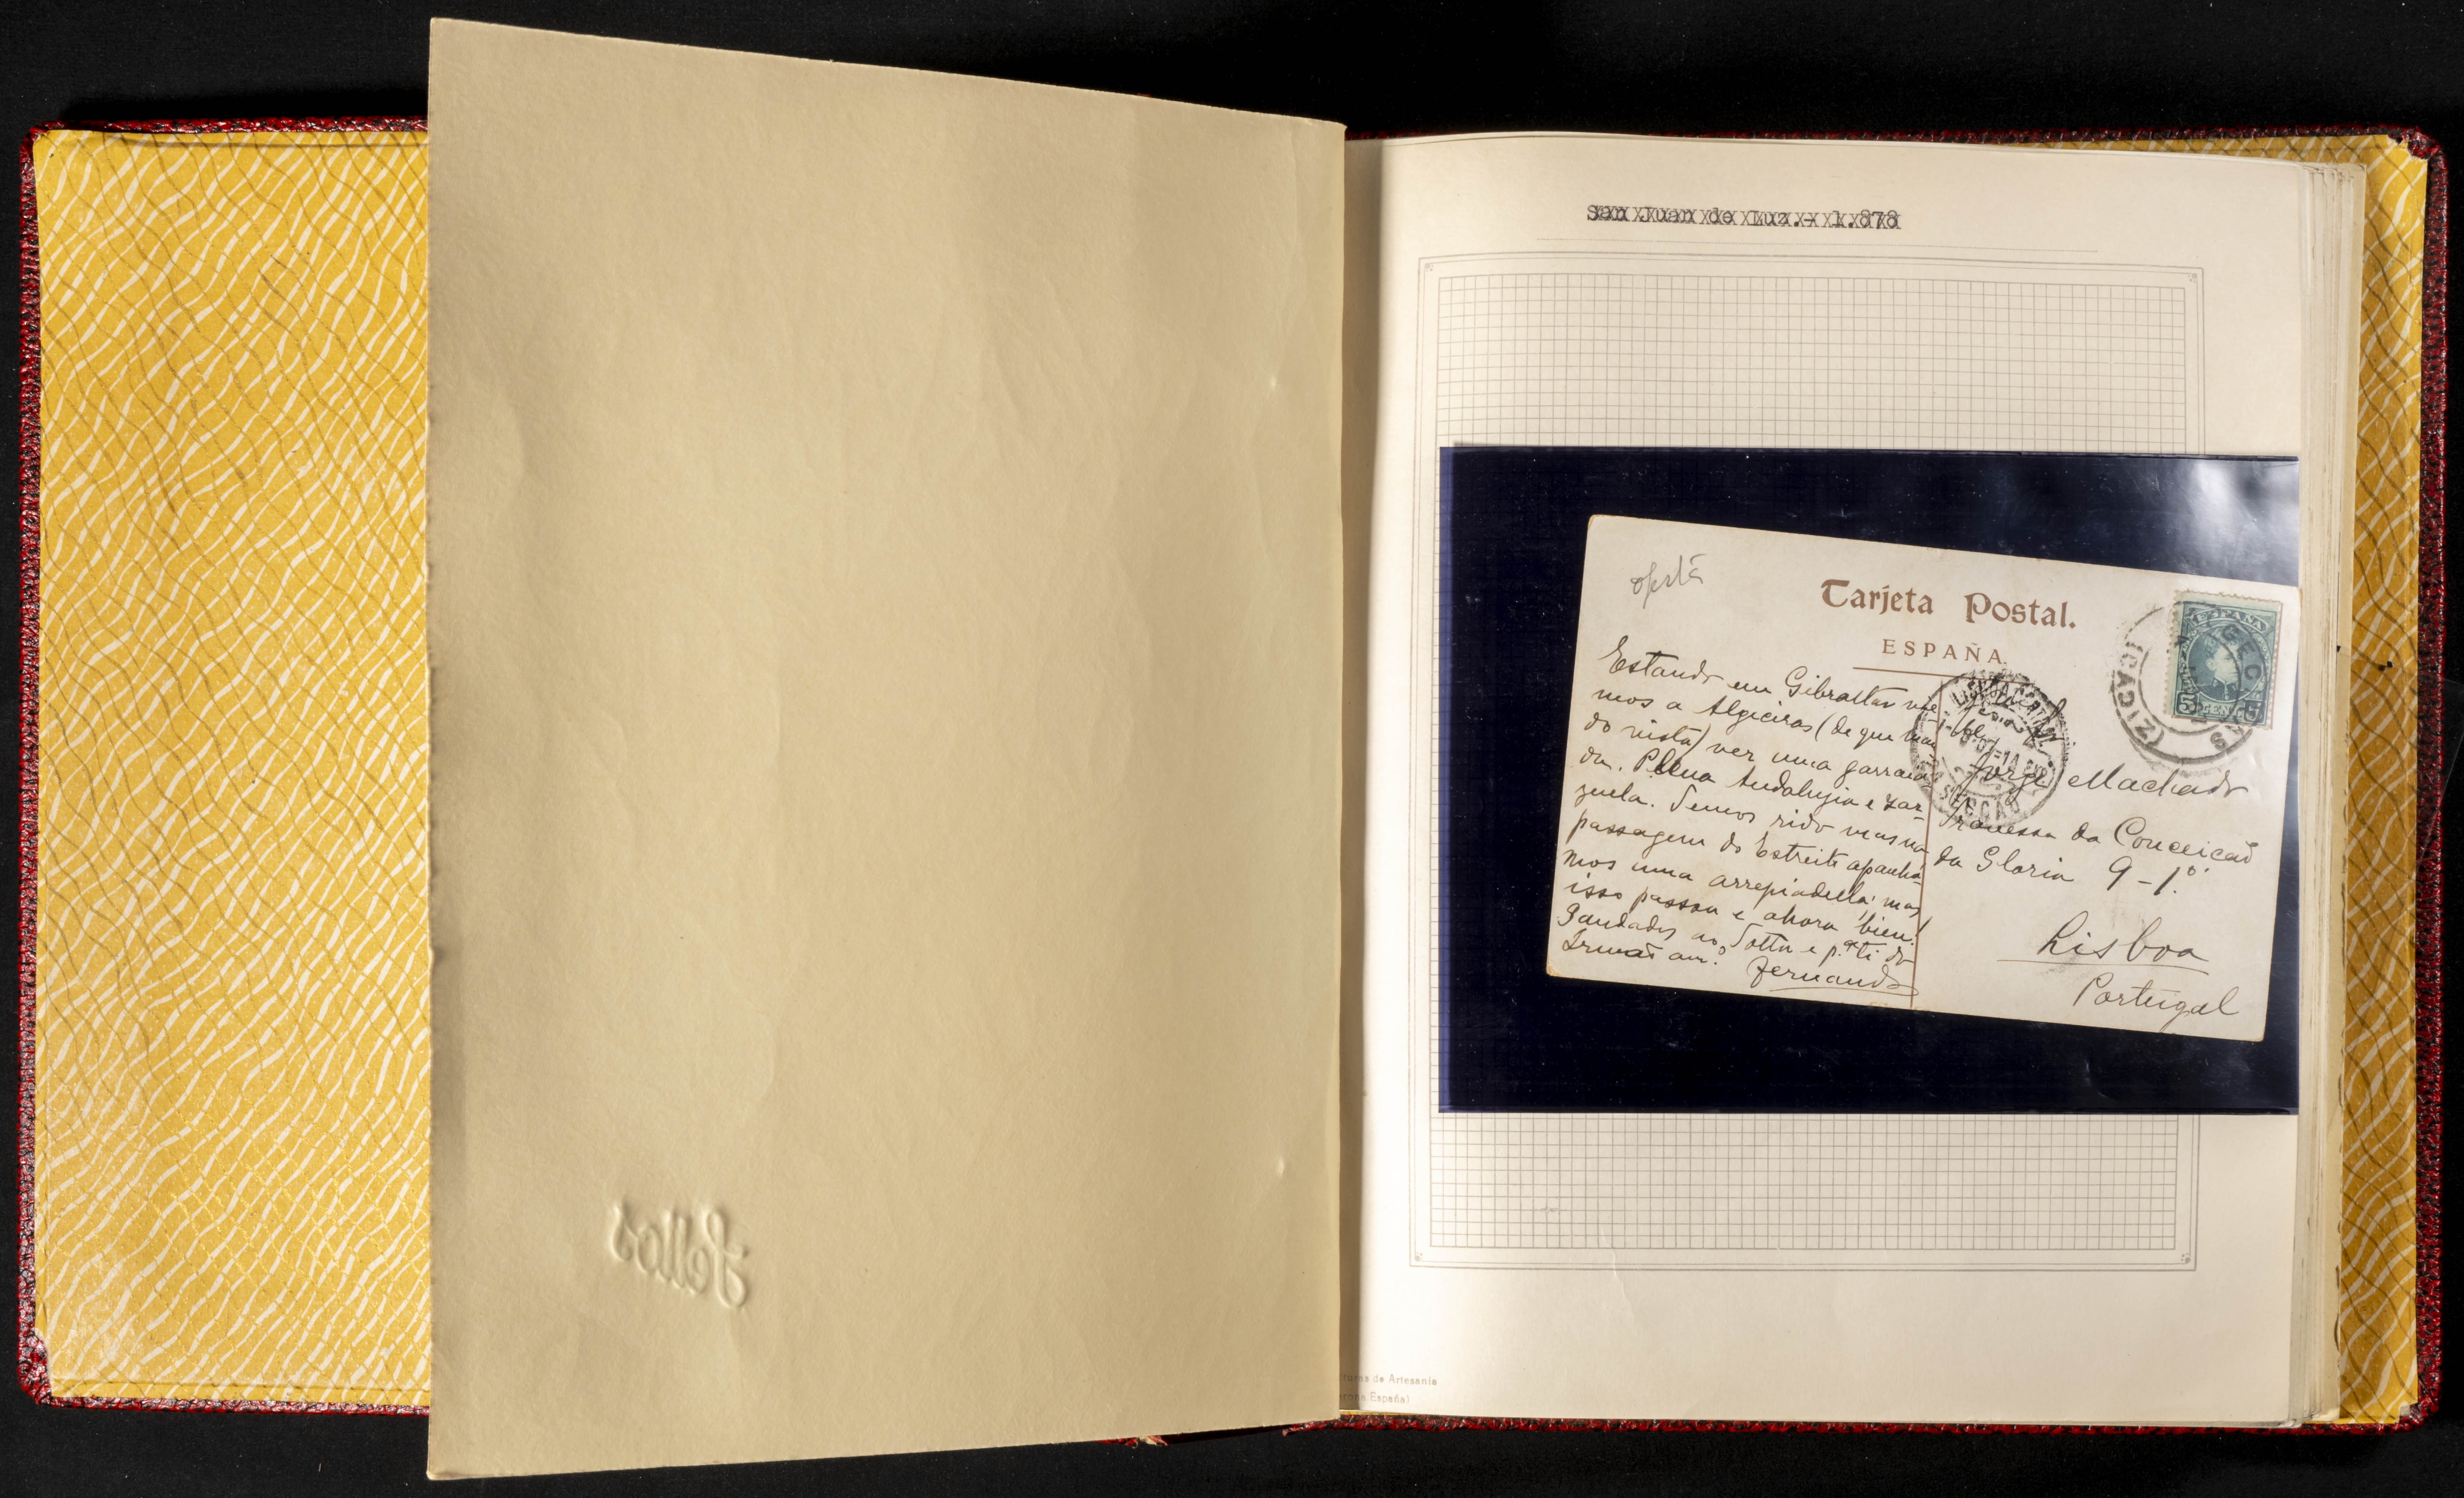 San Juan de Luz.- 1.878
Tarjeta Postal.
ESPAÑA
Estando em Gibraltar vie
mos a Algeciras (de que man
do vista) ver uma garraia
da. Plena Andaluzia e zar
zuela. Temos rido mas na
passagem do Estreito apanhá
mos uma arrepiadella; mas
isso passou e ahora bien!
Saudades ao Totta e p.ª ti do
Irmão am.º
Fernando
Jorge Machado
Travessa da Conceicão
da Gloria 9-1.º
Lisboa
Portugal
ESPAÑA
LISBOA CENTRAL
Sellos
de Artesania
España)